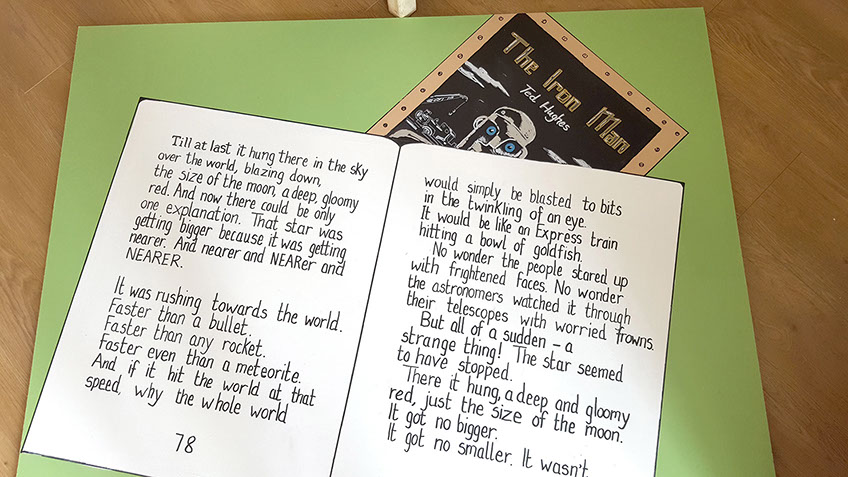 The Iron Man
Ted Hughes
Till at last it hung there in the sky
over the world, blazing down,
the size of the moon, a deep, gloomy
red. And now there could be only
one explanation. That star was
getting bigger because it was getting
nearer. And nearer and NEARer and
NEARER.
It was rushing towards the world.
Faster than a bullet.
Faster than any rocket.
Faster even than a meteorite.
And if it hit the world at that
speed, why the whole world
78
would simply be blasted to bits
in the twinkling of an eye.
It would be like an Express train
hitting a bowl of goldfish.
No wonder the people stared up
with frightened faces. No wonder
the astronomers watched it through
their telescopes with worried frowns.
But all of a sudden – a
strange thing! The star seemed
to have stopped.
There it hung, a deep and gloomy
red, just the size of the moon.
It got no bigger.
It got no smaller. It wasn't